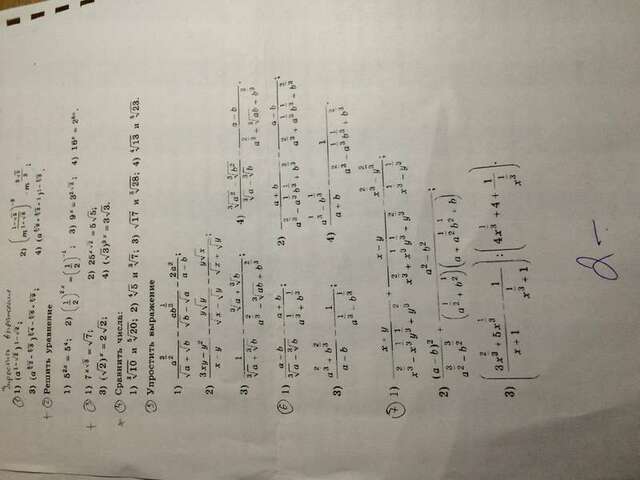 Упростить выражение
① 1) (a^{1-√2})^{1-√2}; 2) (m^{\frac{1-√3}{1-√3}})^{-3} - m^{\frac{3√3}{2}};
② Решить уравнение
1) 5^{2x} = 5^4; 2) (\frac{1}{2})^{2x} = (\frac{1}{2})^{-1}; 3) 9^x = 3^{2√3}; 4) 16^x = 2^{8π}.
+ ③ 1) 7^{x√3} = √7; 2) 25^{x√2} = 5√5;
3) (√2)^x = 2√2; 4) (√3)^{3x} = 3√3.
+ ④ Сравнить числа:
1) \sqrt[3]{10} и \sqrt[5]{20}; 2) \sqrt[4]{5} и \sqrt[3]{7}; 3) √17 и \sqrt[3]{28}; 4) \sqrt[4]{13} и \sqrt[5]{23}.
⑤ Упростить выражение
1) \frac{a^{\frac{3}{2}}}{√a + √b} - \frac{ab^{\frac{1}{2}}}{√b - √a} - \frac{2a^2}{a - b};
2) \frac{3xy - y^2}{x - y} - \frac{y√y}{√x - √y} - \frac{y√x}{√x + √y};
3) \frac{1}{\sqrt[3]{a} + \sqrt[3]{b}} - \frac{\sqrt[3]{a} + \sqrt[3]{b}}{a^{\frac{2}{3}} - \sqrt[3]{ab} + b^{\frac{2}{3}}}; 4) \frac{\sqrt[3]{a^2} - \sqrt[3]{b^2}}{\sqrt[3]{a} - \sqrt[3]{b}} - \frac{a - b}{a^{\frac{2}{3}} + \sqrt[3]{ab} + b^{\frac{2}{3}}}.
⑥ 1) \frac{a - b}{\sqrt[3]{a} - \sqrt[3]{b}} - \frac{a + b}{a^{\frac{1}{3}} + b^{\frac{1}{3}}}; 2) \frac{a + b}{a^{\frac{2}{3}} - a^{\frac{1}{3}}b^{\frac{1}{3}} + b^{\frac{2}{3}}} - \frac{a - b}{a^{\frac{2}{3}} + a^{\frac{1}{3}}b^{\frac{1}{3}} + b^{\frac{2}{3}}};
3) \frac{a^{\frac{2}{3}} + b^{\frac{2}{3}}}{a - b} - \frac{1}{a^{\frac{1}{3}} - b^{\frac{1}{3}}}; 4) \frac{a^{\frac{1}{3}} - b^{\frac{1}{3}}}{a + b} - \frac{1}{a^{\frac{2}{3}} - a^{\frac{1}{3}}b^{\frac{1}{3}} + b^{\frac{2}{3}}}.
⑦ 1) \frac{x + y}{x^{\frac{2}{3}} - x^{\frac{1}{3}}y^{\frac{1}{3}} + y^{\frac{2}{3}}} + \frac{x - y}{x^{\frac{2}{3}} + x^{\frac{1}{3}}y^{\frac{1}{3}} + y^{\frac{2}{3}}} - \frac{x^{\frac{2}{3}} - y^{\frac{2}{3}}}{x^{\frac{1}{3}} - y^{\frac{1}{3}}};
2) \frac{(a - b)^2}{a^{\frac{3}{2}} - b^{\frac{3}{2}}} + \frac{a^2 - b^2}{(a^{\frac{1}{2}} + b^{\frac{1}{2}})(a + a^{\frac{1}{2}}b^{\frac{1}{2}} + b)};
3) (\frac{3x^{\frac{2}{3}} + 5x^{\frac{1}{3}}}{x + 1} - \frac{1}{x^{\frac{1}{3}} + 1}) : (4x^{\frac{1}{3}} + 4 + \frac{1}{x^{\frac{1}{3}}}).
2-